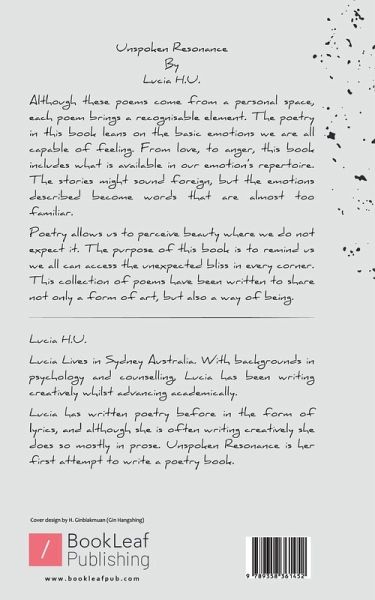 Unspoken Resonance
By
Lucia H.U.
Although these poems come from a personal space,
each poem brings a recognisable element. The poetry
in this book leans on the basic emotions we are all
capable of feeling. From love, to anger, this book
includes what is available in our emotion's repertoire.
The stories might sound foreign, but the emotions
described become words that are almost too
familiar.
Poetry allows us to perceive beauty where we do not
expect it. The purpose of this book is to remind us
we all can access the unexpected bliss in every corner.
This collection of poems have been written to share
not only a form of art, but also a way of being.
Lucia H.U.
Lucia Lives in Sydney Australia. With backgrounds in
psychology and counselling, Lucia has been writing
creatively whilst advancing academically.
Lucia has written poetry before in the form of
lyrics, and although she is often writing creatively she
does so mostly in prose. Unspoken Resonance is her
first attempt to write a poetry book.
Cover design by H. Ginbiakmuan (Gin Hangshing)
BookLeaf
Publishing
www.bookleafpub.com
9 789358 361452